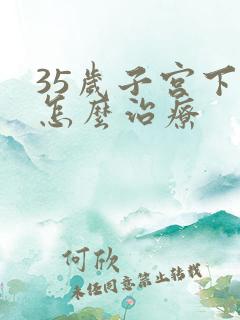 35歲子宮下
怎麼治療
何欣
未經同意禁止轉載